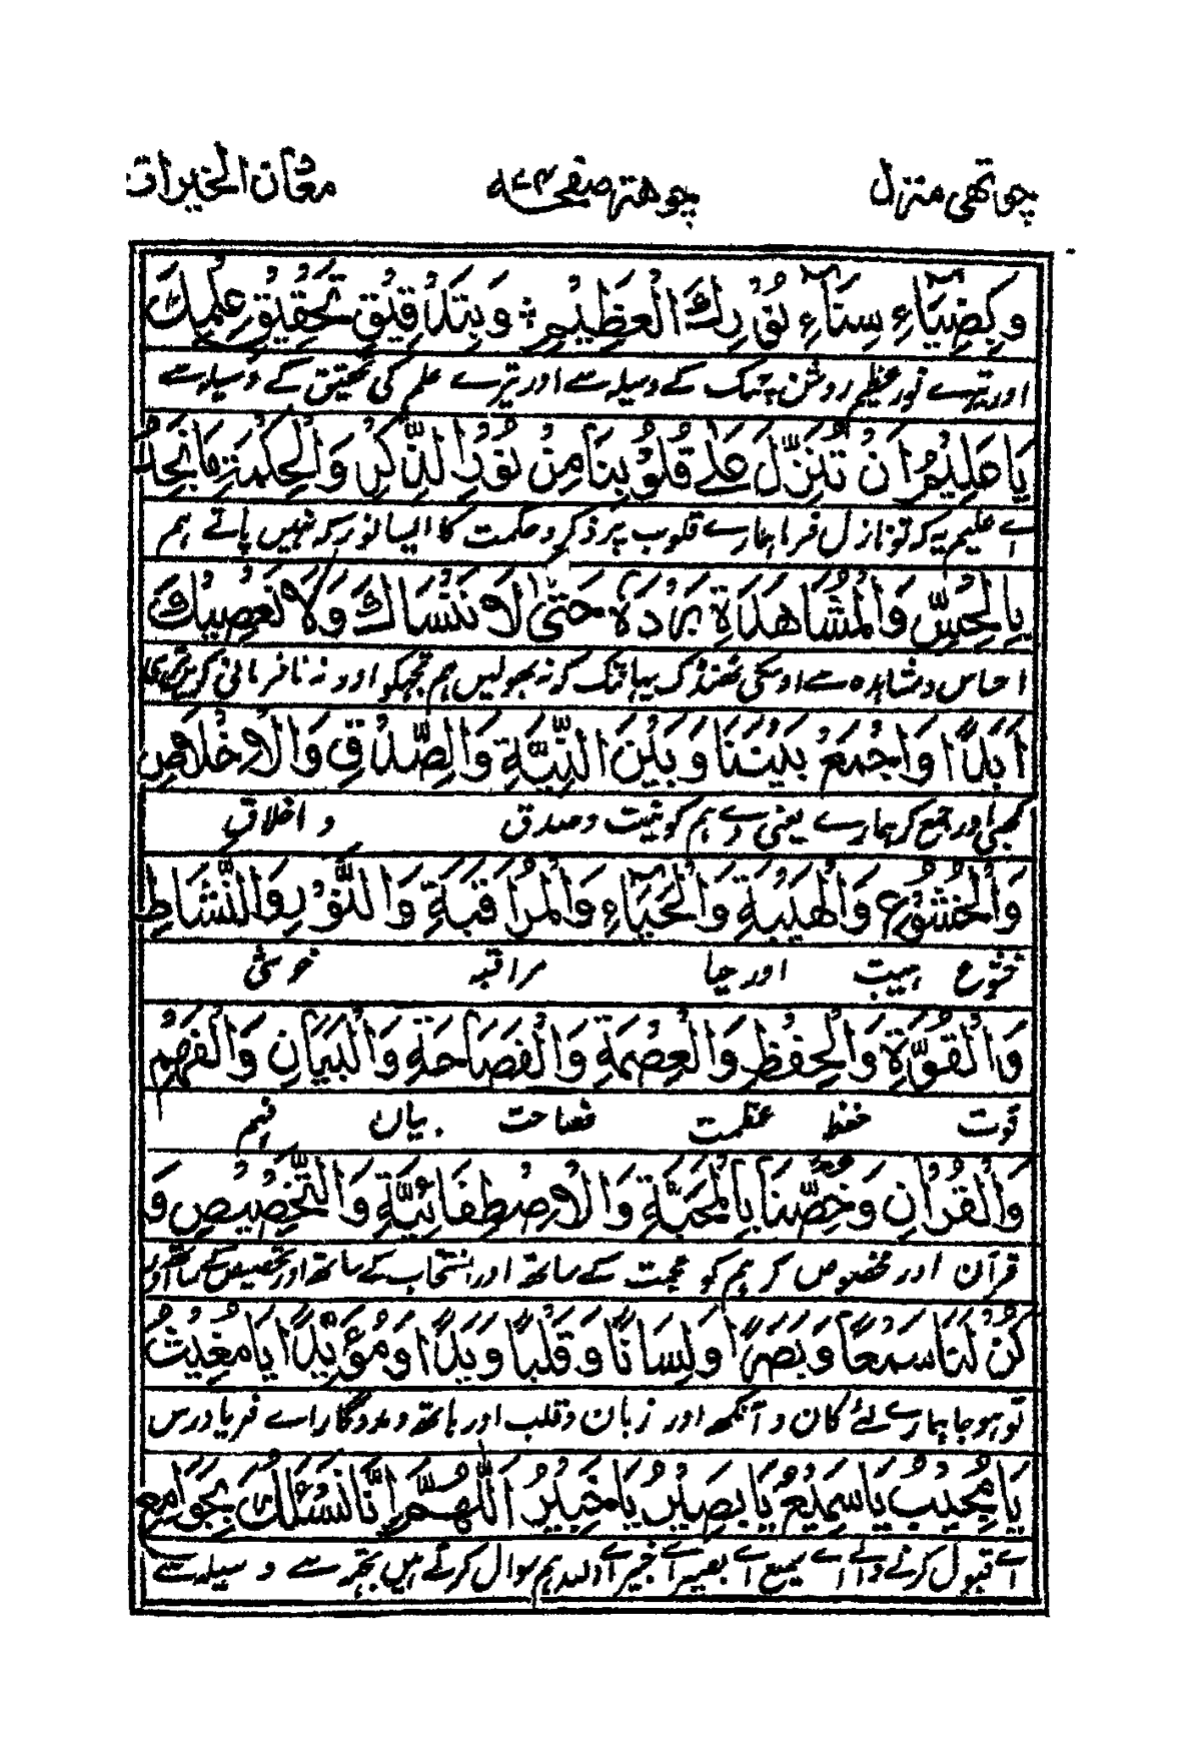 چوتھی منزل چوہتر صفحہ ۷۴ معان الخیرات
وَبِضِيَآءِ سِنَآءِ نُوْرِكَ الْعَظِيْمِ وَبِتَدْقِيْقِ تَحْقِيْقِ عِلْمِكَ
اور تیرے نور عظیم روشن چمک کے وسیلہ سے اور تیرے علم کی تحقیق کے وسیلہ سے
يَا عَلِيْمُ اَنْ تُنَزِّلَ عَلٰى قُلُوْبِنَا مِنْ نُوْرِ الذِّكْرِ وَالْحِكْمَةِ مَا نَجِدُ
اے علیم یہ کہ تو نازل فرما ہمارے قلوب پر ذکر و حکمت کا ایسا نور کہ نہیں پاتے ہم
بِالْحِسِّ وَالْمُشَاهَدَةِ بَرْدَهٗ حَتّٰى لَا نَنْسَاكَ وَلَا نَعْصِيْكَ
احساس و مشاہدہ سے اوسکی ٹھنڈک یہانتک کہ نہ بھولیں ہم تجھکو اور نہ نافرمانی کریں تیری
اَبَدًا وَاجْمَعْ بَيْنَنَا وَبَيْنَ النِّيَّةِ وَالصِّدْقِ وَالْاِخْلَاصِ
کبھی اور جمع کر ہمارے یعنی دے ہم کو نیت و صدق و اخلاق
وَالْخُشُوْعِ وَالْهَيْبَةِ وَالْحَيَآءِ وَالْمُرَاقَبَةِ وَالنُّوْرِ وَالنَّشَاطِ
خشوع ہیبت اور حیا مراقبہ خوشی
وَالْقُوَّةِ وَالْحِفْظِ وَالْعِصْمَةِ وَالْفَصَاحَةِ وَالْبَيَانِ وَالْفَهْمِ
قوت حفظ عظمت فصاحت بیان فہم
وَالْقُرْاٰنِ وَخُصَّنَا بِالْمَحَبَّةِ وَالْاِصْطِفَائِيَّةِ وَالتَّخْصِيْصِ وَ
قرآن اور مخصوص کر ہم کو محبت کے ساتھ اور انتخاب کے ساتھ اور تخصیص کے ساتھ اور
كُنْ لَنَا سَمْعًا وَبَصَرًا وَلِسَانًا وَقَلْبًا وَيَدًا وَمُؤَيِّدًا يَا مُغِيْثُ
تو ہو جا ہمارے لئے کان و آنکھ اور زبان و قلب اور ہاتھ و مددگار اے فریادرس
يَا مُجِيْبُ يَا سَمِيْعُ يَا بَصِيْرُ يَا خَبِيْرُ اَللّٰهُمَّ اِنَّا نَسْئَلُكَ بِجَوَامِعِ
اے قبول کرنے والے اے سمیع اے بصیر اے خبیر اے اللہ ہم سوال کرتے ہیں تجھ سے وسیلہ سے